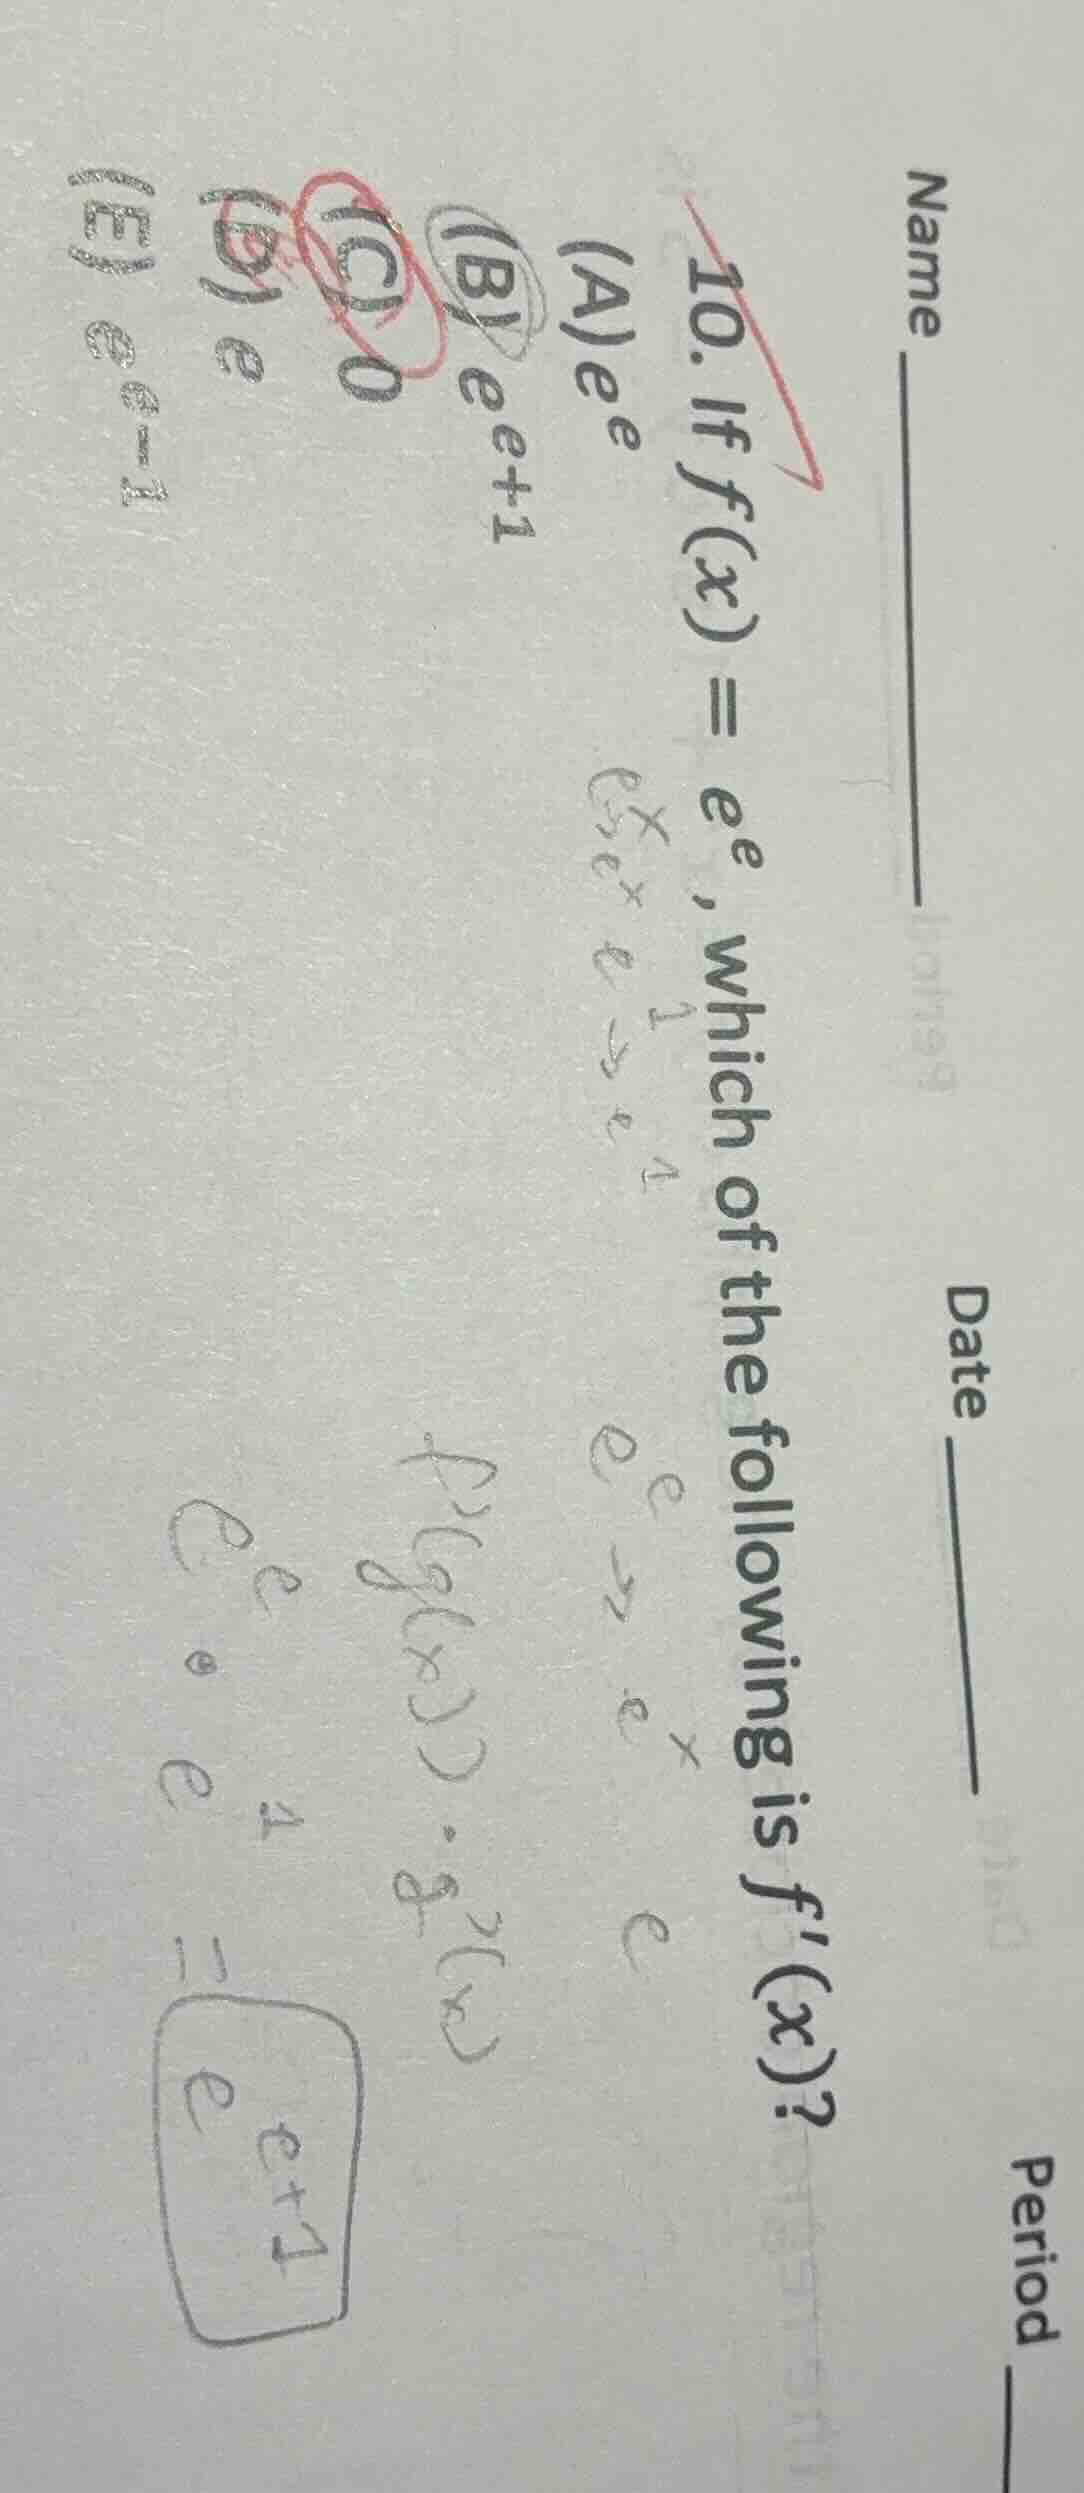 Name ________ Date ________ Period ____
10. If f(x) = e^e, which of the following is f'(x)?
(A) e^e
(B) e^{e+1}
(C) 0
(D) e
(E) e^{e-1}
e^x → e^x e^1 → e^1
e^e → e^x e
f'(g(x)) · g'(x)
e^e · e^1 = e^{e+1}